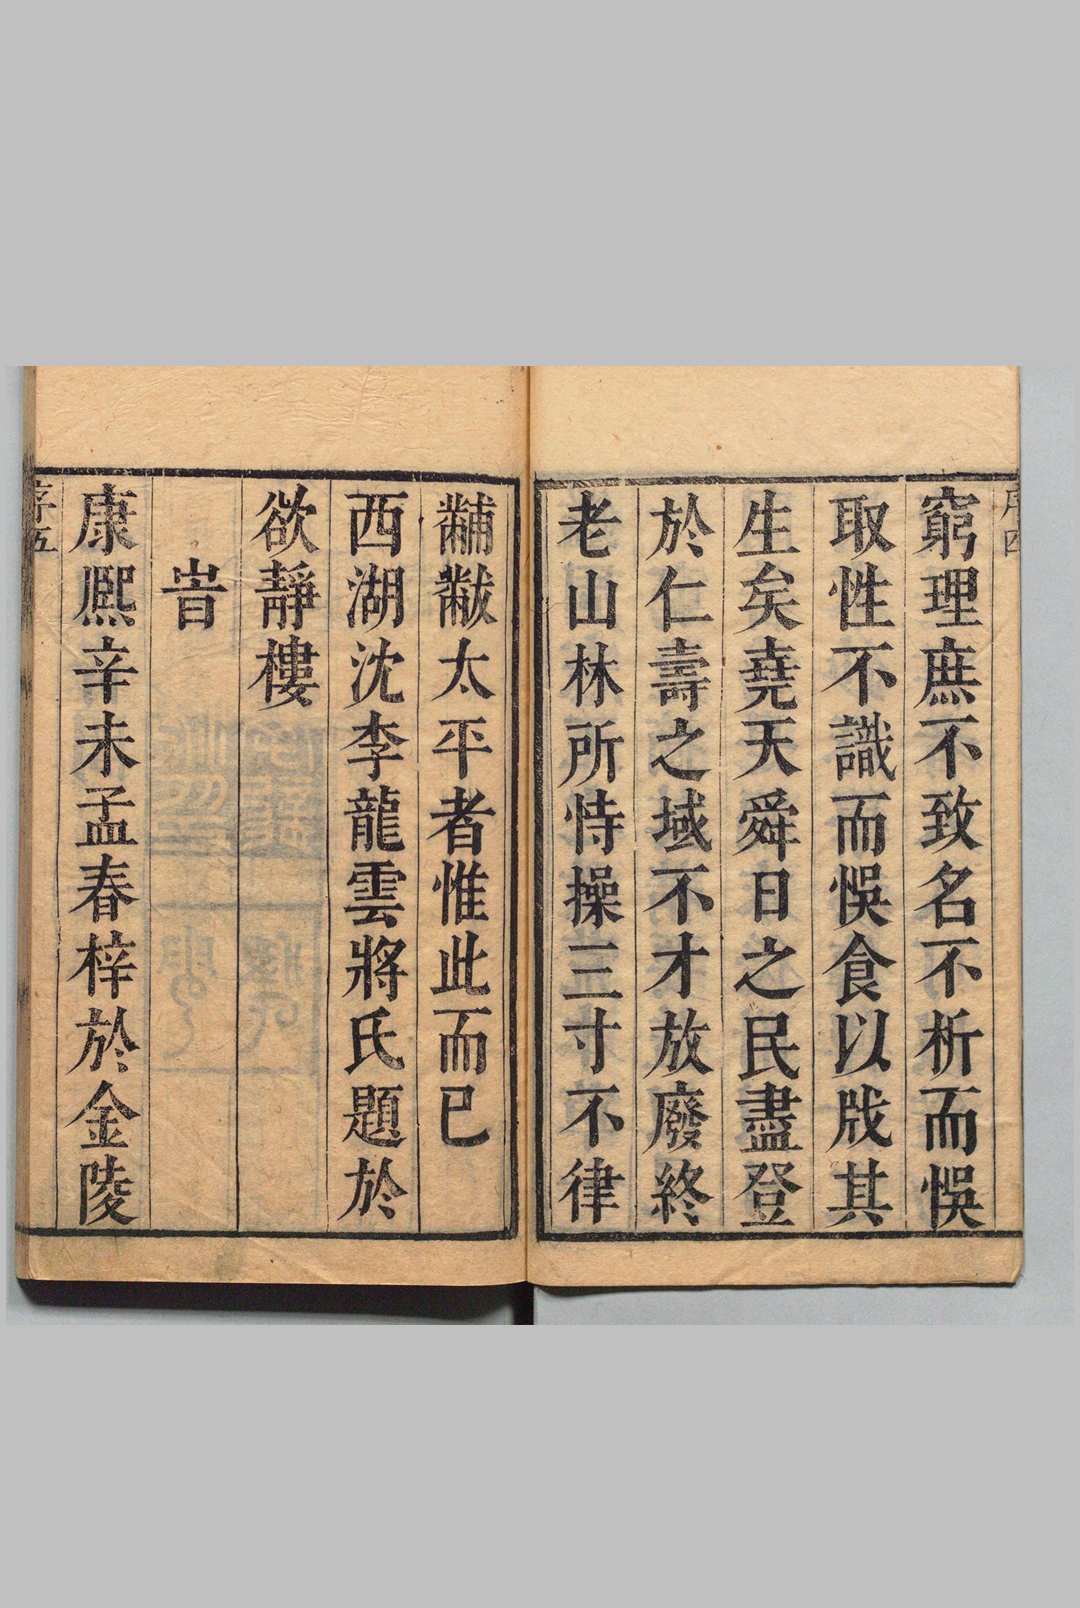 窮理庶不致名不析而悞
取性不識而悞食以戕其
生矣堯天舜日之民盡登
於仁壽之域不才放廢終
老山林所恃操三寸不律
黼黻太平者惟此而已
西湖沈李龍雲將氏題於
欲靜樓
旹
康熙辛未孟春梓於金陵
序五